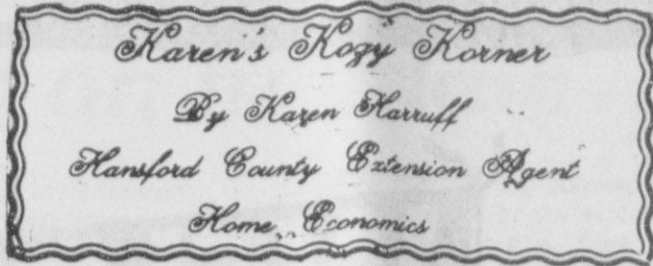 Karen's Kozy Korner
By Karen Harruff
Hansford County Extension Agent
Home Economics